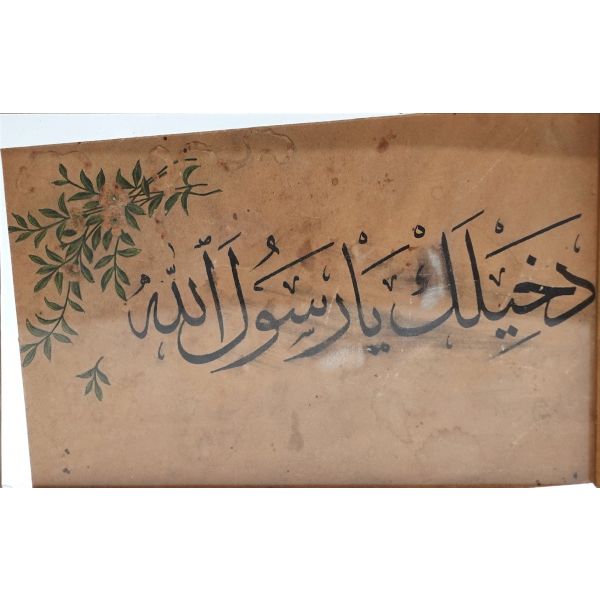 دَخِيْلَكْ يَا رَسُولَ ٱللّٰهُ